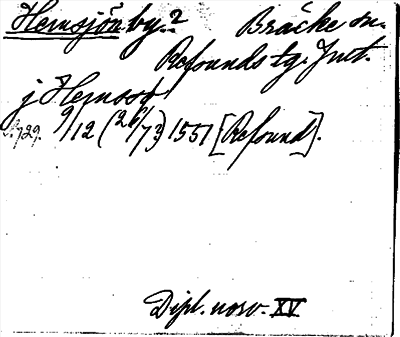 Hemsjön by.? Bräcke sn.
Refsunds tg. Jmt.
j Hemssø
S. 129. 9/12 (26/73) 1551 [Refsund].
Dipl. norv. XV